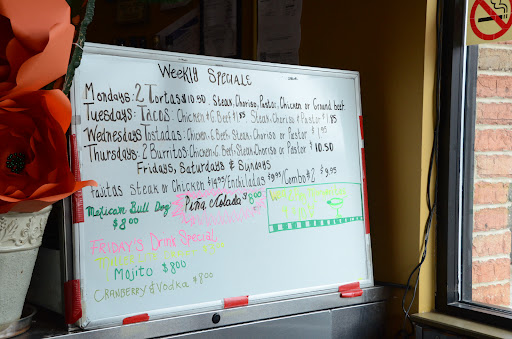 Weekly Speciale
Mondays: 2 Tortas $10.50 Steak, Choriso, Pastor, Chicken or Ground beef
Tuesdays: Tacos: Chicken & G Beef $1.85 Steak, Choriso & Pastor $1.85
Wednesdays Tostadas: Chicken, G Beef, Steak, Choriso or Pastor $1.95
Thursdays: 2 Burritos: Chicken, G Beef, Steak, Choriso or Pastor $10.50
Fridays, Saturdays & Sundays
Fajitas Steak or Chicken $14.95/Enchiladas $9.95/Combo #2 $9.95
Mexican Bull Dog $8.00
Piña Colada $8.00
Friday's Drink Special
Mojito $8.00
Cranberry & Vodka $8.00